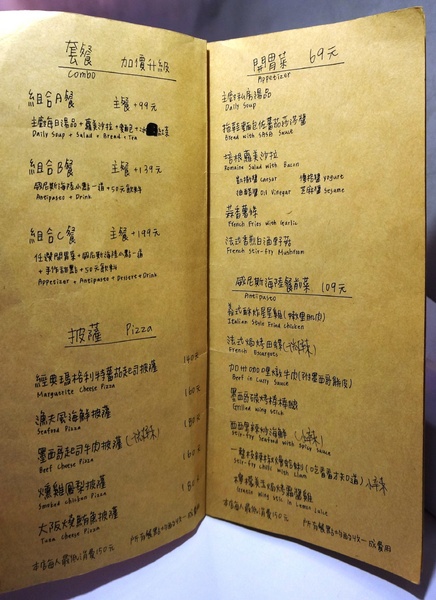 套餐 加價升級
Combo
組合A餐 主餐+99元
主廚每日湯品+蘿美沙拉+麵包+
Daily Soup + Salad + Bread + Tea
組合B餐 主餐+139元
威尼斯海陸小點一道+50元飲料
Antipasto + Drink
組合C餐 主餐+199元
任選開胃菜+威尼斯海陸小點一道
+手作甜點+50元飲料
Appetizer + Antipasto + Dessert + Drink
披薩 Pizza
經典瑪格利特蕃茄起司披薩 140元
Margherita Cheese Pizza
漁夫風海鮮披薩 160元
Seafood Pizza
墨西哥起司牛肉披薩(微辣) 180元
Beef Cheese Pizza
燻雞鳳梨披薩 160元
Smoked chicken Pizza
大阪燒鮪魚披薩 180元
Tuna Cheese Pizza
本店每人最低消費150元 所有餐點均酌收一成費用
開胃菜 69元
Appetizer
主廚私房湯品
Daily Soup
拖鞋麵包佐蕃茄莎莎醬
Bread with SASA Sauce
培根蘿美沙拉
Romaine Salad with Bacon
凱撒醬 Caesar 優格醬 Yogurt
油醋醬 Oil Vinegar 芝麻醬 Sesame
蒜香薯條
French Fries with Garlic
法式香煎白酒野菇
French stir-fry Mushroom
威尼斯海陸餐前菜 109元
Antipasto
義式酥炸星星雞(嫩里肌肉)
Italian Style Fried chicken
法式焗烤田螺(微辣)
French Escargots
Beef in Curry Sauce
墨西哥碳烤棒棒腿
Grilled wing stick
海鮮(小辣)
Stir-fry Seafood with Spicy Sauce
Stir-fry Chili with Clam
檸檬
wing stir in Lemon Juice
本店每人最低消費150元 所有餐點均酌收一成費用